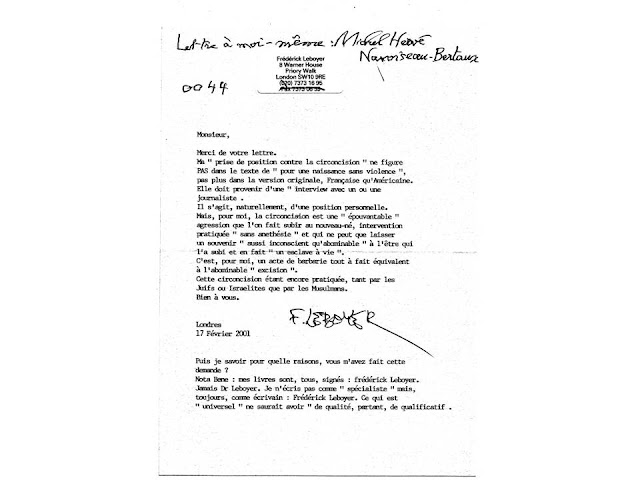 Lettre à moi-même : Michel Hervé
Navoiseau-Bertaux
Frédérick Leboyer
8 Warner House
Priory Walk
London SW10 9RE
(020) 7373 16 95
0044
Monsieur,
Merci de votre lettre.
Ma " prise de position contre la circoncision " ne figure
PAS dans le texte de " pour une naissance sans violence ",
pas plus dans la version originale, Française qu'Américaine.
Elle doit provenir d'une " interview avec un ou une
journaliste .
Il s'agit, naturellement, d'une position personnelle.
Mais, pour moi, la circoncision est une " épouvantable "
agression que l'on fait subir au nouveau-né, intervention
pratiquée " sans anethésie " et qui ne peut que laisser
un souvenir " aussi inconscient qu'abominable " à l'être qui
l'a subi et en fait " un esclave à vie ".
C'est, pour moi, un acte de berberie tout à fait équivalent
à l'abominable " excision ".
Cette circoncision étant encore pratiquée, tant par les
Juifs ou Israelites que par les Musulmans.
Bien à vous.
F. LEBOYER
Londres
17 Février 2001
Puis je savoir pour quelle raisons, vous m'avez fait cette
demande ?
Nota Bene : mes livres sont, tous, signés : frédérick Leboyer.
Jamais Dr Leboyer. Je n'écris pas comme " spécialiste " mais,
toujours, comme écrivain : Frédérick Leboyer. Ce qui est
" universel " ne saurait avoir " de qualité, partant, de qualificatif .